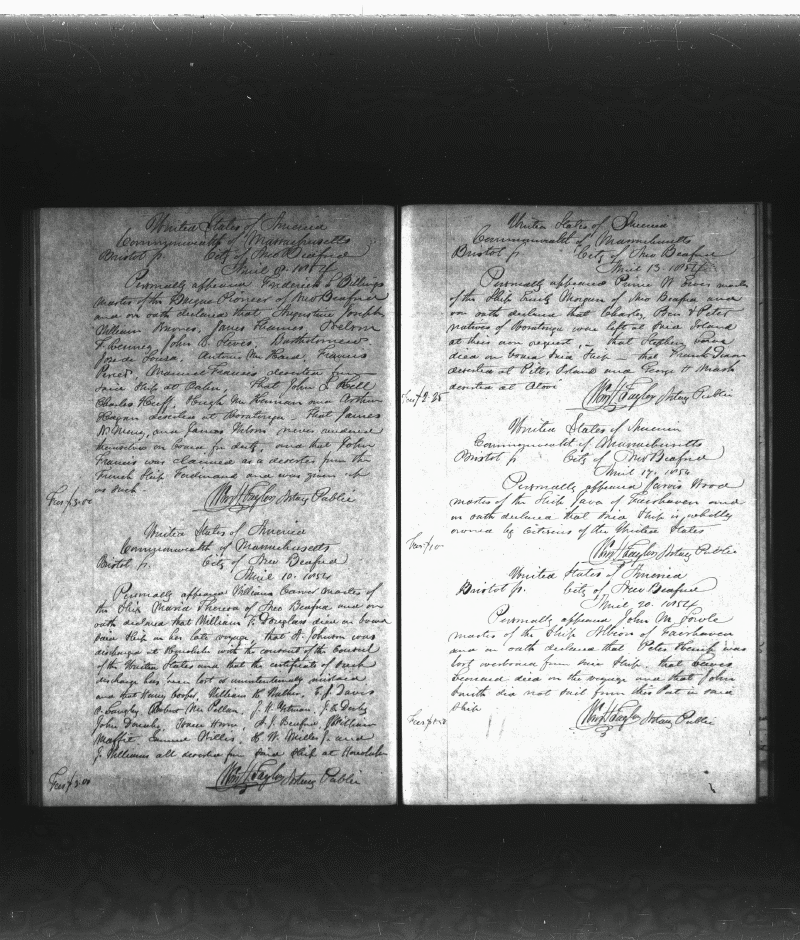 United States of America
Commonwealth of Massachusetts
Bristol ss. City of New Bedford
April 8. 1854
Personally appeared Frederick S Billings
master of the Barque Pioneer of New Bedford
and on oath declared that Augustine Joseph
William Barnes, James Haines, Nelson
F. Kenney, John C. Steves, Bartholomew
Jose de Souza, Antone, Francis
Perez, Manuel Francis deserted from
said Ship at that John S. Hall
Charles Huff, Hugh and Arthur
Hagan deserted at Roratonga. That James
and James Nelson never rendered
themselves on board for duty, and that John
Francis was claimed as a deserter from the
French Ship Ferdinand and was given up
as such.
Fees $3.50 Wm H Taylor Notary Public
United States of America
Commonwealth of Massachusetts
Bristol ss. City of New Bedford
April 10. 1854
Personally appeared William Carver master of
the Ship Maria Theresa of New Bedford and on
oath declared that William F. Douglass died on board
said Ship on her late voyage, that A. Johnson was
discharged at Honolulu with the consent of the Consul
of the United States and that the certificate of such
discharge has been lost or unintentionally mislaid
and that Henry Cooper, William H. Walker, E. J. Davis
Robert McLellan, J. H. J. R. Derby
John Dansby, Isaac Horn, S. J. Benford, William
Moffit, Samuel Willis, H. W. Miller Jr. and
J. Williams all deserted from said Ship at Honolulu
Fees $3.00 Wm H Taylor Notary Public
United States of America
Commonwealth of Massachusetts
Bristol ss. City of New Bedford
April 13. 1854
Personally appeared W. Ewer master
of the Ship Emily Morgan of New Bedford and
on oath declared that Charley, Ben & Peter
natives of Roratonga were left at said Island
at their own request, that Stephen
died on board said Ship that Frank
deserted at Pitt, Island and George H. Marsh
deserted at
Fees $2.25 Wm H Taylor Notary Public
United States of America
Commonwealth of Massachusetts
Bristol ss. City of New Bedford
April 17. 1854
Personally appeared Jarvis Wood
master of the Ship Java of Fairhaven and
on oath declared that said Ship is wholly
owned by Citizens of the United States
Wm H Taylor Notary Public
United States of America
Bristol ss. City of New Bedford
April 20. 1854
Personally appeared John M. Soule
master of the Ship Albion of Fairhaven
and on oath declared that Peter was
lost overboard from said Ship. that
died on the voyage and that John
Smith did not sail from this Port in said
Ship
Wm H Taylor Notary Public